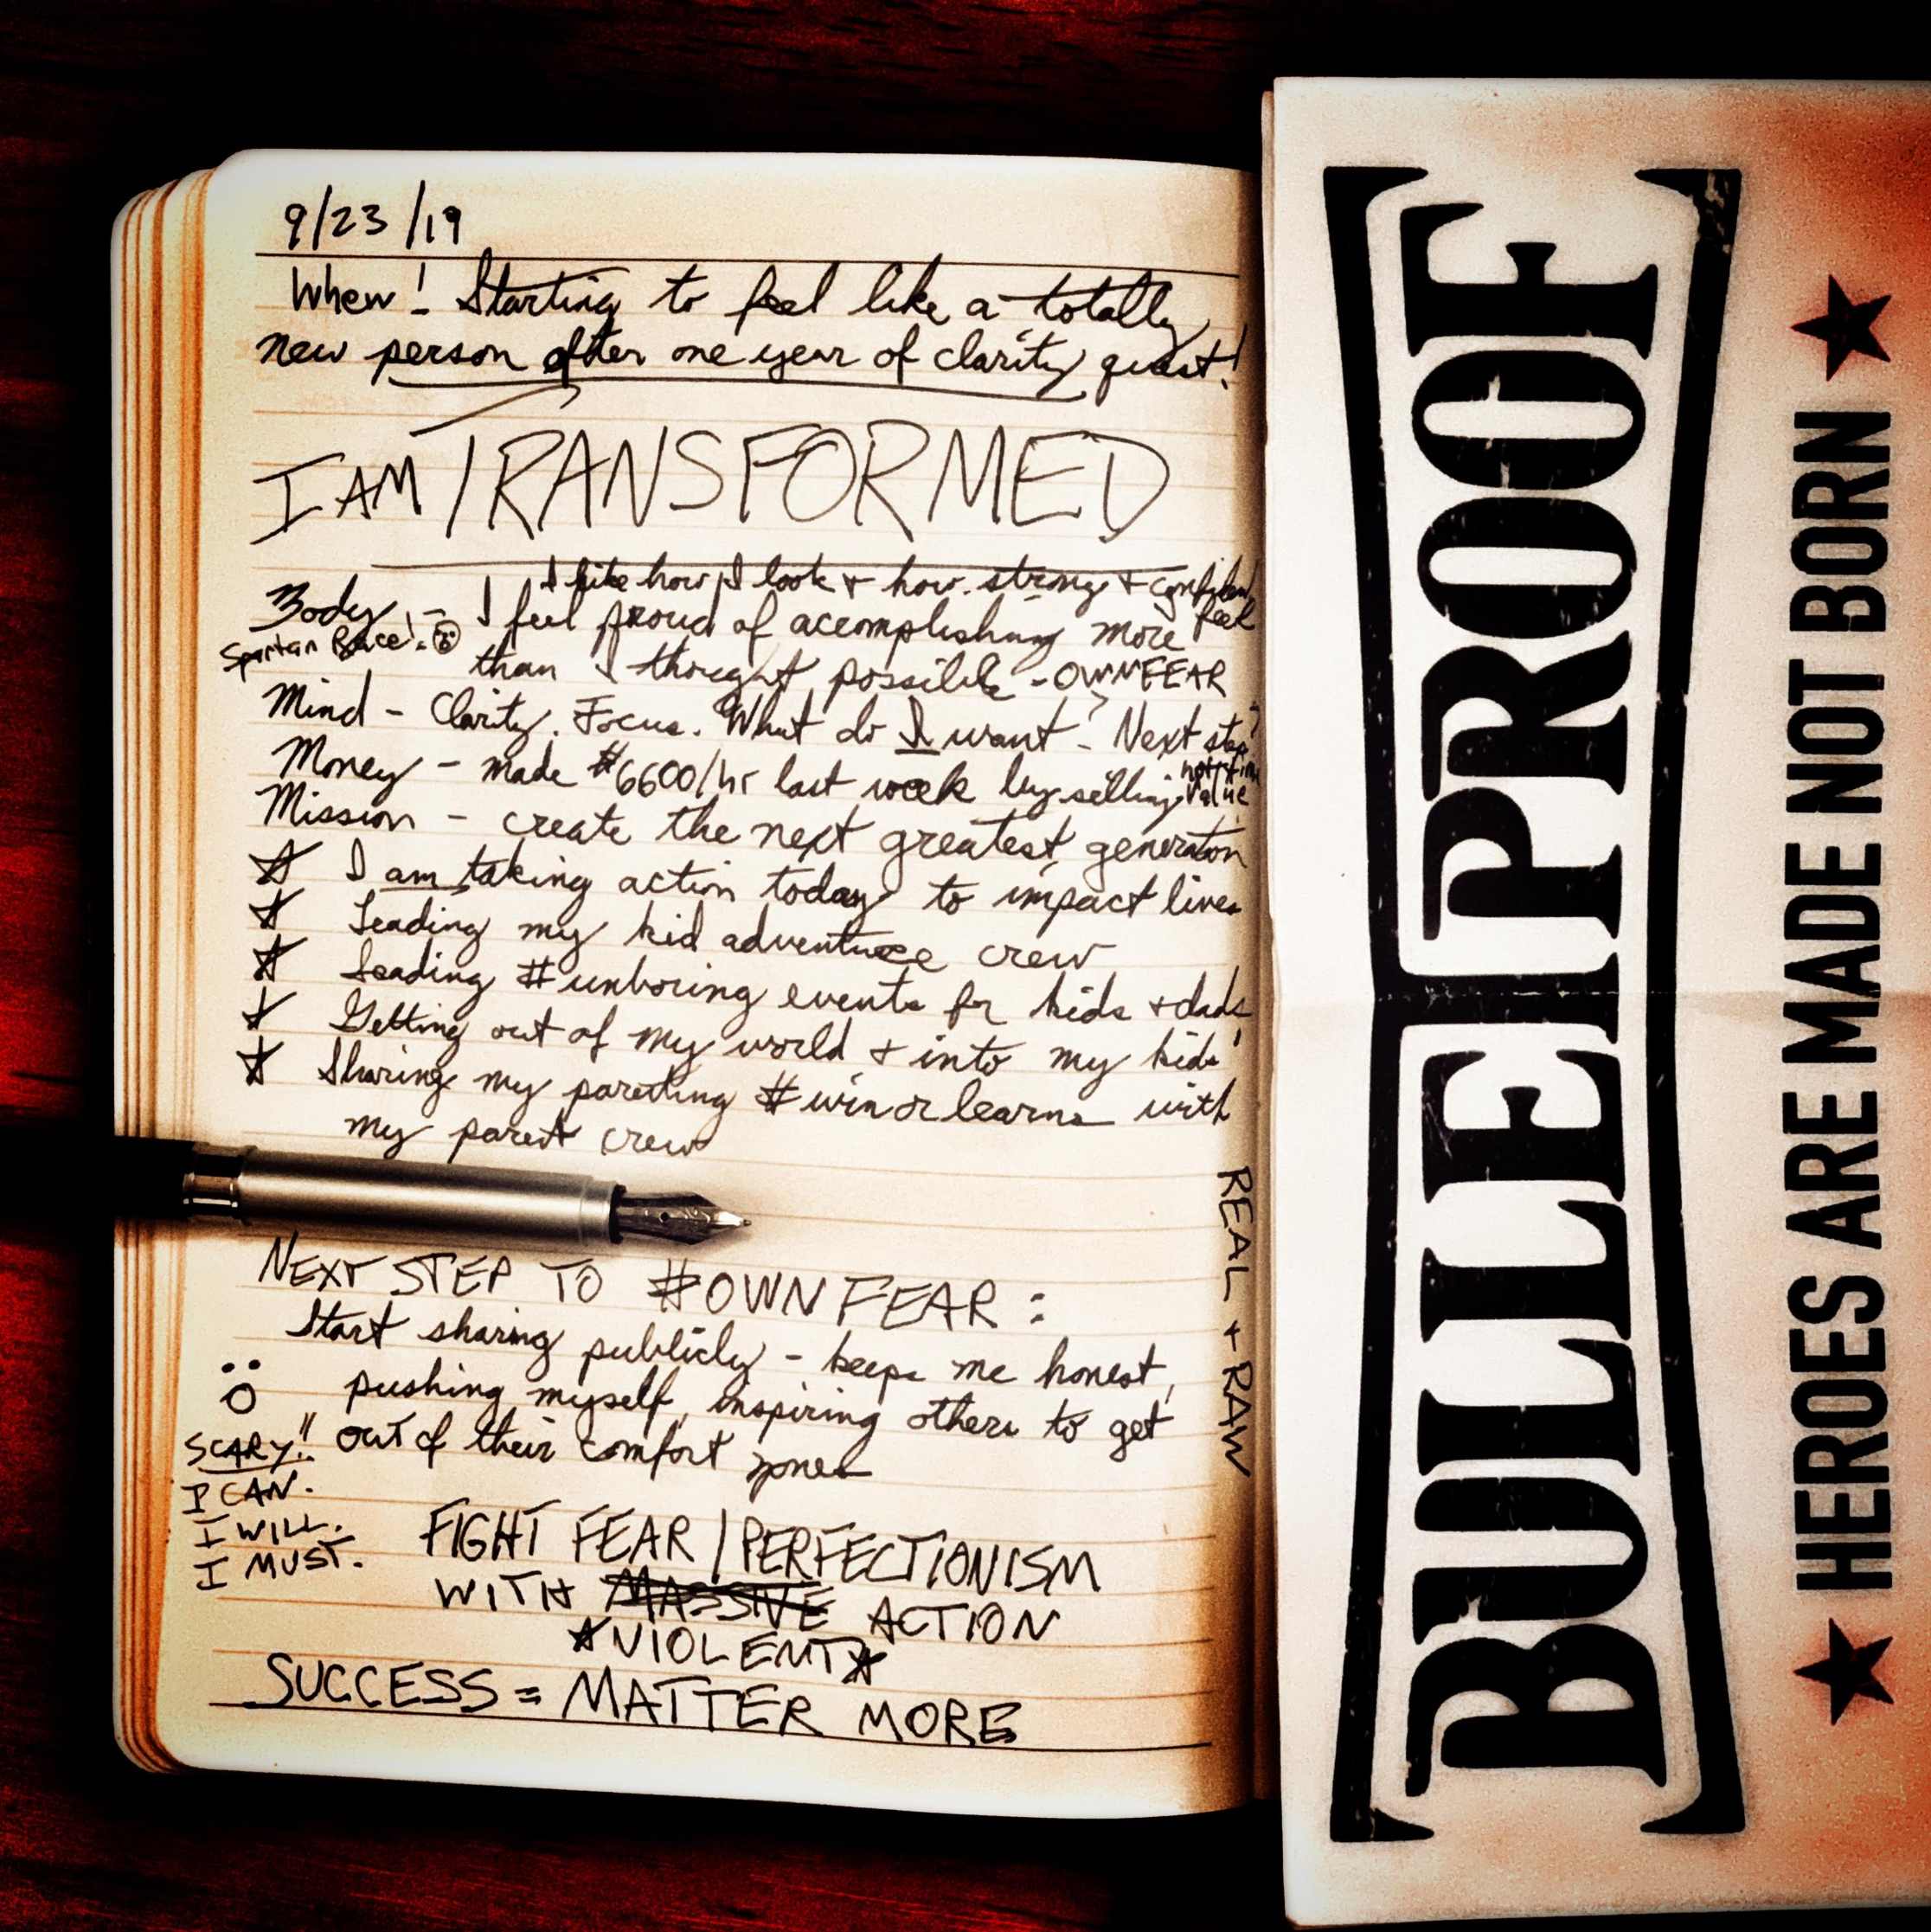 9/23/19
Whew! Starting to feel like a totally
new person after one year of clarity quest!
I AM TRANSFORMED
I like how I look + how strong + confident
Body - I feel proud of accomplishing more feel
Spartan Race!
than I thought possible - OWNFEAR
Mind - Clarity. Focus. What do I want? Next step?
Money - made $6600/hr last week by selling value not time
Mission - create the next greatest generation
☆ I am taking action today to impact lives
☆ Leading my kid adventure crew
☆ Leading #unboring events for kids + dads
☆ Getting out of my world + into my kids'
☆ Sharing my parenting #winorlearns with
my parent crew
NEXT STEP TO #OWNFEAR:
Start sharing publicly - keeps me honest,
pushing myself, inspiring others to get
out of their comfort zones
SCARY!!
I CAN.
I WILL.
I MUST.
FIGHT FEAR / PERFECTIONISM
WITH MASSIVE ACTION
☆VIOLENT☆
SUCCESS = MATTER MORE
REAL + RAW
BULLETPROOF
★ HEROES ARE MADE NOT BORN ★